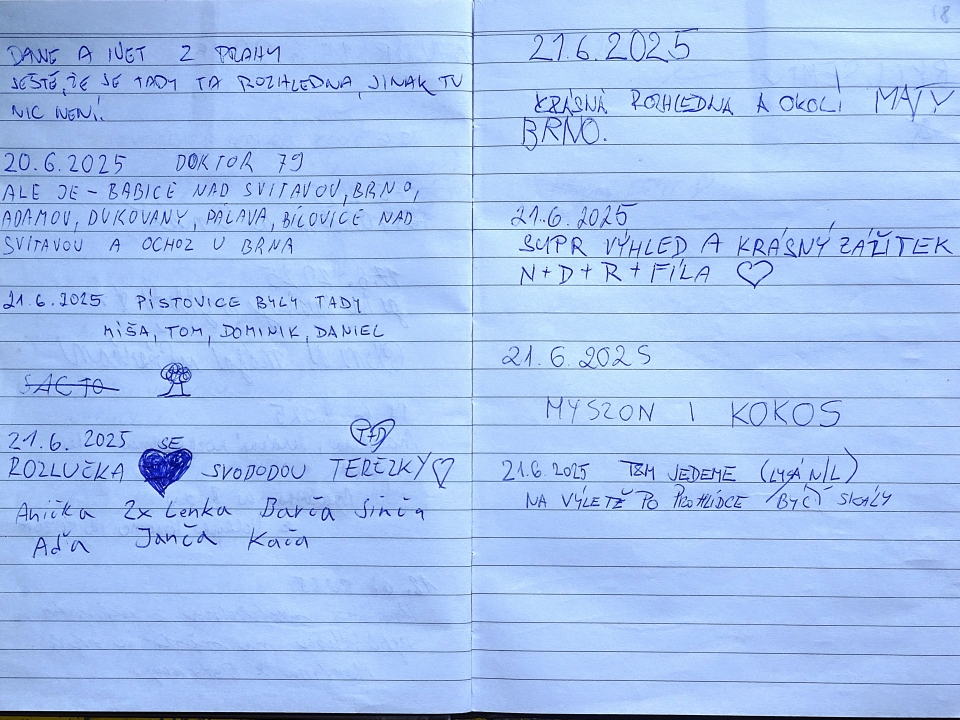 DANE A IVET Z PRAHY
JEŠTĚ, ŽE JE TADY TA ROZHLEDNA, JINAK TU
NIC NENÍ!
20.6.2025 DOKTOR 79
ALE JE - BABICE NAD SVITAVOU, BRNO,
ADAMOV, DUKOVANY, PÁLAVA, BÍLOVICE NAD
SVITAVOU A OCHOZ U BRNA
21.6.2025 PÍSTOVICE BYLY TADY
MÍŠA, TOM, DOMINIK, DANIEL
21.6.2025 SE T+D
ROZLUČKA SVODODOU TEREZKY
Anička 2x Lenka Barča Sinča
Aďa Janča Kača
18
21.6.2025
KRÁSNÁ ROZHLEDNA A OKOLÍ MATY
BRNO.
21.6.2025
SUPR VÝHLED A KRÁSNÝ ZÁŽITEK
N+D+R+FÍLA
21.6.2025
MYSZON I KOKOS
21.6.2025 JEDEME
NA VÝLETĚ PO PROHLÍDCE BÝČÍ SKÁLY